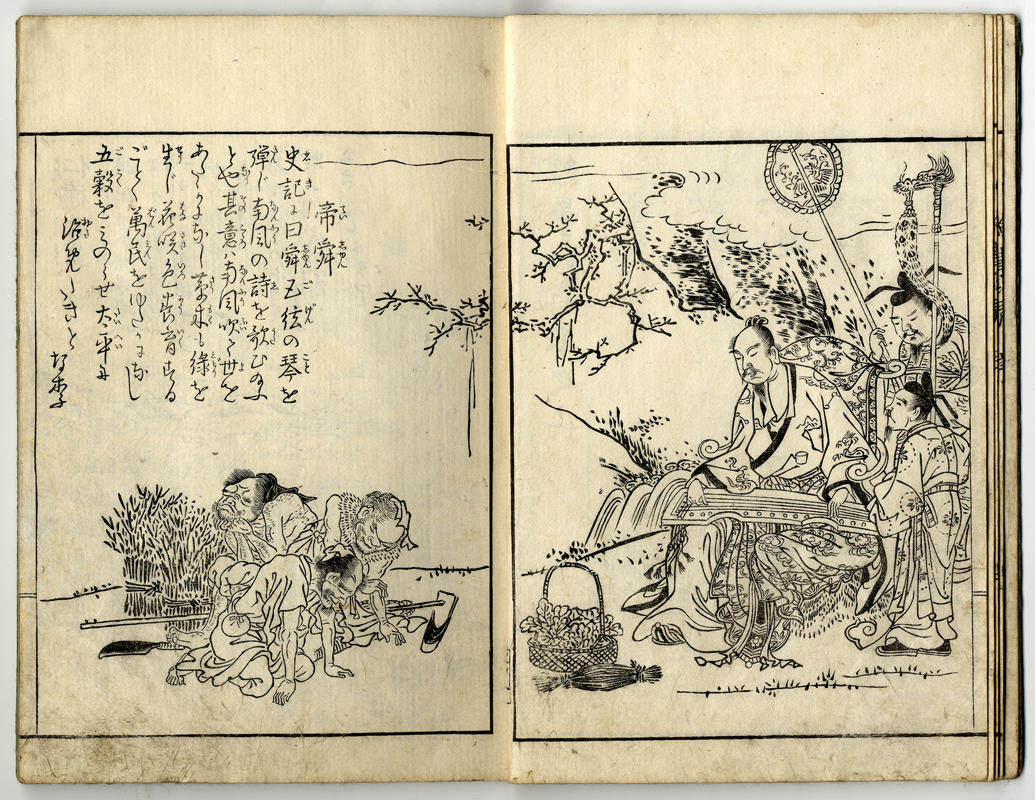 帝舜
史記に曰舜五絃の琴を
弾じ南風の詩を歌ひ給ふ
とや其意ハ南風吹て世を
あたゝかになし草木も緑を
生じ花咲色
ごとく萬民をゆたかになし
五穀をみのらせ太平に